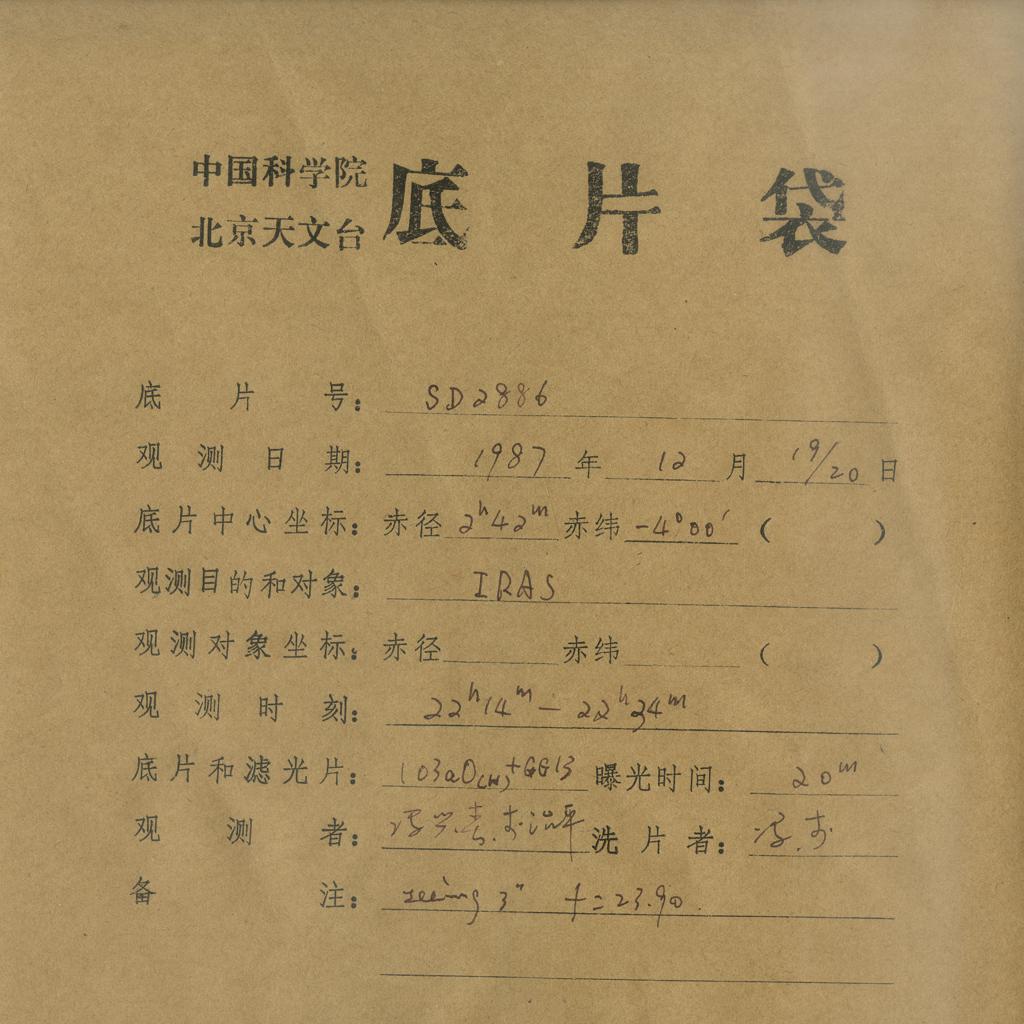 中国科学院
北京天文台
底片袋
底片号： SD2886
观测日期： 1987 年 12 月 19/20 日
底片中心坐标：赤径 2h42m 赤纬 -4°00′ （ ）
观测目的和对象： IRAS
观测对象坐标：赤径 赤纬 （ ）
观测时刻： 22h14m — 22h34m
底片和滤光片： 103aO(H)+GG13 曝光时间： 20m
观测者： 洗片者：
备注： seeing 3" f=23.90